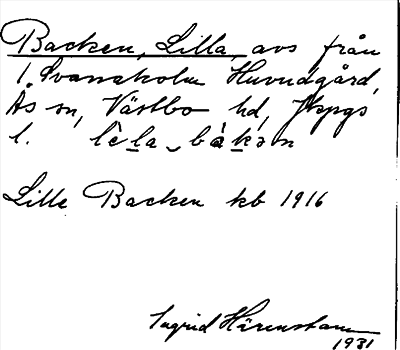 Backen, Lilla, avs från
1. Svansholm Huvudgård,
Ås sn, Västbo hd, Jkpgs
l. lèla bàkən
Lille Backen kb 1916
Ingrid Härenstam
1931